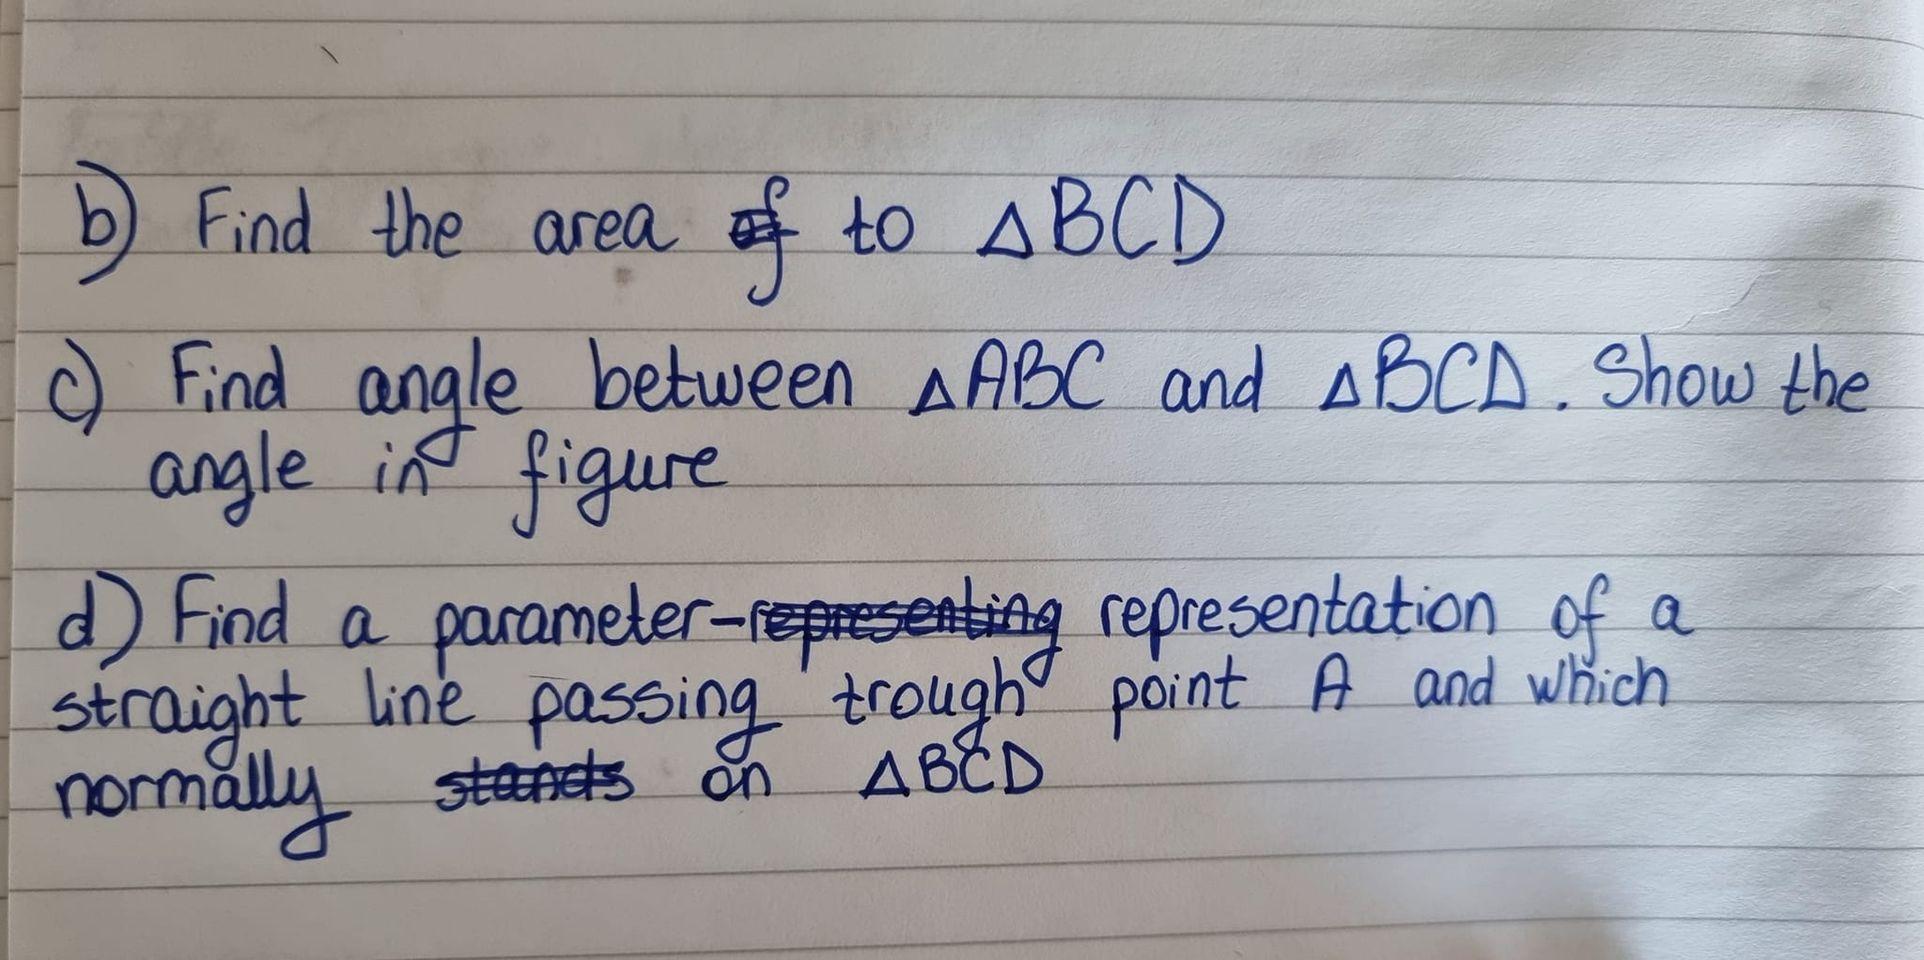 b) Find the area of to △BCD
c) Find angle between △ABC and △BCD. Show the
angle in figure
d) Find a parameter-representing representation of a
straight line passing trough point A and which
normally stands on △BCD